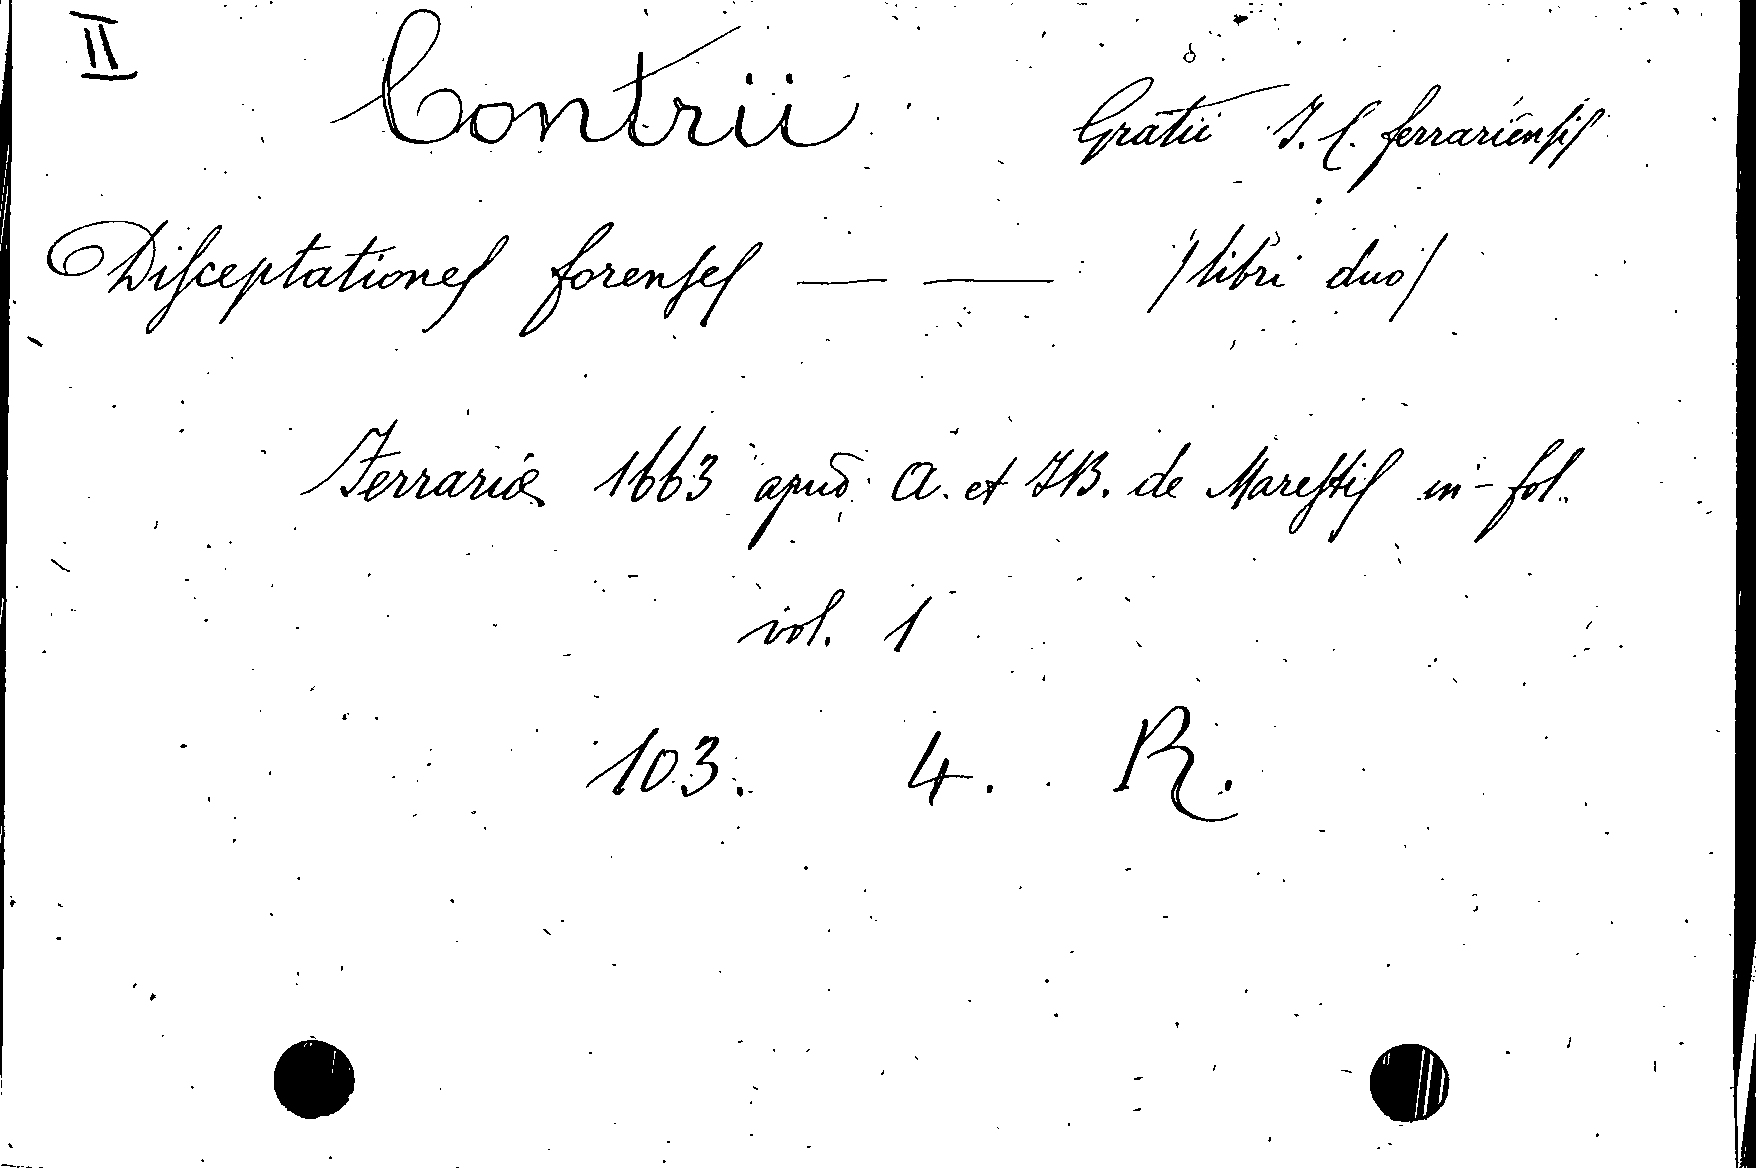 II
Contrii Gratii J. C. ferrariensis
Disceptationes forenses — — /libri duo/
Ferrariæ 1663 apud A. et J.B. de Marestis in-fol.
vol. 1
103. 4. R.